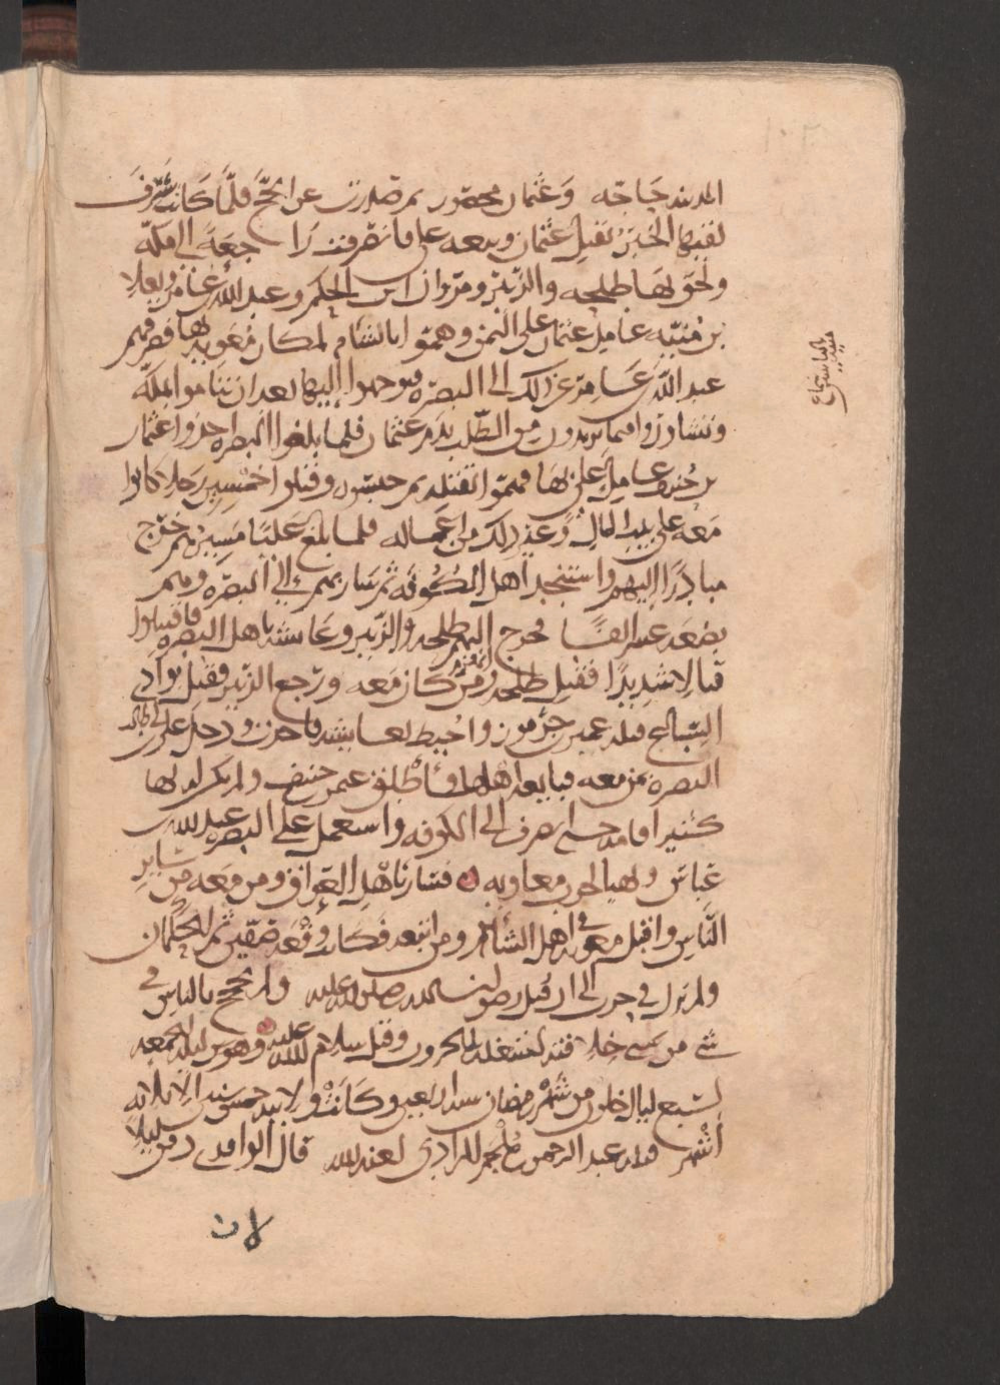 المدينه حاجه وعثمان محصور ثم صدرت عن الحج فلما كانت بسرف
لقيها الخبر بقتل عثمان وبيعه علي فانصرفت راجعة الي مكة
ولحق بها طلحه والزبير ومروان ابن الحكم وعبد الله بن عامر ويعلا
بن منيه عامل عثمان علي اليمن وهموا بالشام لمكان معويه بها فصرفهم
عبد الله بن عامر عن ذلك الي البصره فتوجهوا إليها بعد ان تتاموا بمكة
وتشاوروا فيما يريدون من الطلب بدم عثمان فلما بلغوا البصره اخذوا عثمان
بن حنيف عامل علي بها فهموا بقتله ثم حبسوه وقتلوا خمسين رجلا كانوا
معه علي بيت المال وغير ذلك من اعماله فلما بلغ عليا مسيرهم خرج
مبادرا إليهم واستنجد اهل الكوفه ثم سار بهم إلي البصره وهم
بضعه عشر الفا فخرج اليهم طلحه والزبير وعايشه باهل البصره فاقتتلوا
قتالا شديدا فقتل طلحه وانهزم من كان معه ورجع الزبير فقتل بوادي
السباع قتله عمير بن جرموز واحيط بعايشه فاخذت ودخل علي بن ابي طالب
البصره بمن معه فبايعه اهلها فاطلق عثمن بن حنيف ولم يكن له بها
كثير اقامه حتي انصرف الي الكوفه واستعمل علي البصره عبد الله بن
عباس وتهيا لحرب معاويه فسار باهل العراق ومن معه من ساير
الناس واقبل معويه في اهل الشام ومن اتبعه فكانت وقعه صفين ثم الحكمان
ولم يزل في حرب الي ان قتل رضوان الله عليه ولم يحج بالناس في
شي من سني خلافته لشغله بالحروب وقتل سلام الله عليه وهو من ليله الجمعه
لسبع ليال خلون من شهر رمضان سنه اربعين وكانت ولايته خمس سنين الا ثلاثه
أشهر قتله عبد الرحمن بن ملجم المرادي لعنه الله قال الواقدي دفن ليلا